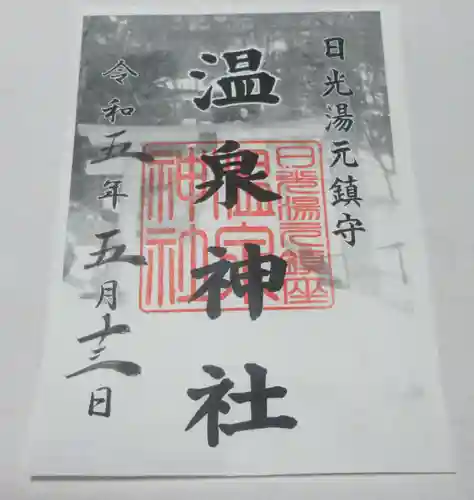 日光湯元鎮守
温泉神社
令和五年五月十三日
日光湯元鎮座
温泉
神社